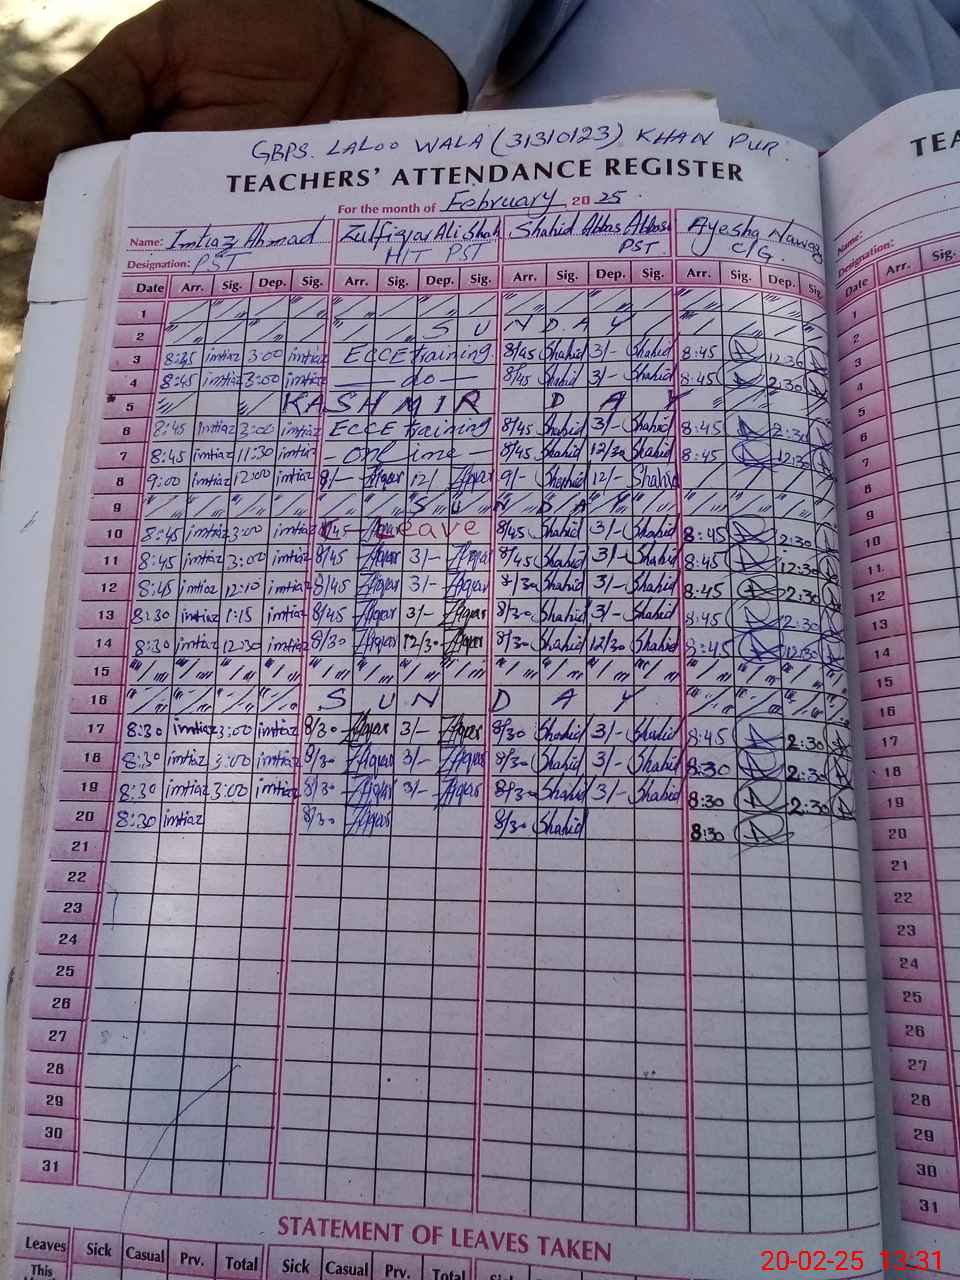 GBPS. LALOO WALA (31310123) KHAN PUR.
TEACHERS' ATTENDANCE REGISTER
For the month of February 20 25.
Name: Imtiaz Ahmad Zulfiqar Ali Shah Shahid Abbas Abbasi Ayesha Nawaz
Designation: PST H/T PST PST C/G.
Date Arr. Sig. Dep. Sig. Arr. Sig. Dep. Sig. Arr. Sig. Dep. Sig. Arr. Sig. Dep. Sig.
1
2 SUNDAY
3 8:45 imtiaz 3:00 imtiaz ECCE training. 8/45 Shahid 3/- Shahid 8:45 12:30
4 8:45 imtiaz 3:00 imtiaz — do — 8/45 Shahid 3/- Shahid 8:45 2:30
5 KASHMIR DAY
6 8:45 imtiaz 3:00 imtiaz ECCE training 8/45 Shahid 3/- Shahid 8:45 2:30
7 8:45 imtiaz 11:30 imtiaz - online - 8/45 Shahid 12/30 Shahid 8:45 12:30
8 9:00 imtiaz 12:00 imtiaz 9/- Zfiqar 12/ Zfiqar 9/- Shahid 12/- Shahid
9 SUNDAY
10 8:45 imtiaz 3:00 imtiaz Leave 8/45 Shahid 3/- Shahid 8:45 2:30
11 8:45 imtiaz 3:00 imtiaz 8/45 Zfiqar 3/- Zfiqar 8/45 Shahid 3/- Shahid 8:45 12:30
12 8:45 imtiaz 12:10 imtiaz 8/45 Zfiqar 3/- Zfiqar 8/30 Shahid 3/- Shahid 8:45 2:30
13 8:30 imtiaz 1:15 imtiaz 8/45 Zfiqar 3/- Zfiqar 8/30 Shahid 3/- Shahid 8:45 2:30
14 8:30 imtiaz 12:30 imtiaz 8/30 Zfiqar 12/30 Zfiqar 8/30 Shahid 12/30 Shahid 8:45 12:30
15
16 SUNDAY
17 8:30 imtiaz 3:00 imtiaz 8/30 Zfiqar 3/- Zfiqar 8/30 Shahid 3/- Shahid 8:45 2:30
18 8:30 imtiaz 3:00 imtiaz 8/30 Zfiqar 3/- Zfiqar 8/30 Shahid 3/- Shahid 8:30 2:30
19 8:30 imtiaz 3:00 imtiaz 8/30 Zfiqar 3/- Zfiqar 8/30 Shahid 3/- Shahid 8:30 2:30
20 8:30 imtiaz 8/30 Zfiqar 8/30 Shahid 8:30
21
22
23
24
25
26
27
28
29
30
31
STATEMENT OF LEAVES TAKEN
Leaves Sick Casual Prv. Total Sick Casual Prv. Total
This
TEA
Name:
Designation:
Date Arr. Sig.
1
2
3
4
5
6
7
8
9
10
11
12
13
14
15
16
17
18
19
20
21
22
23
24
25
26
27
28
29
30
31
20-02-25 13:31